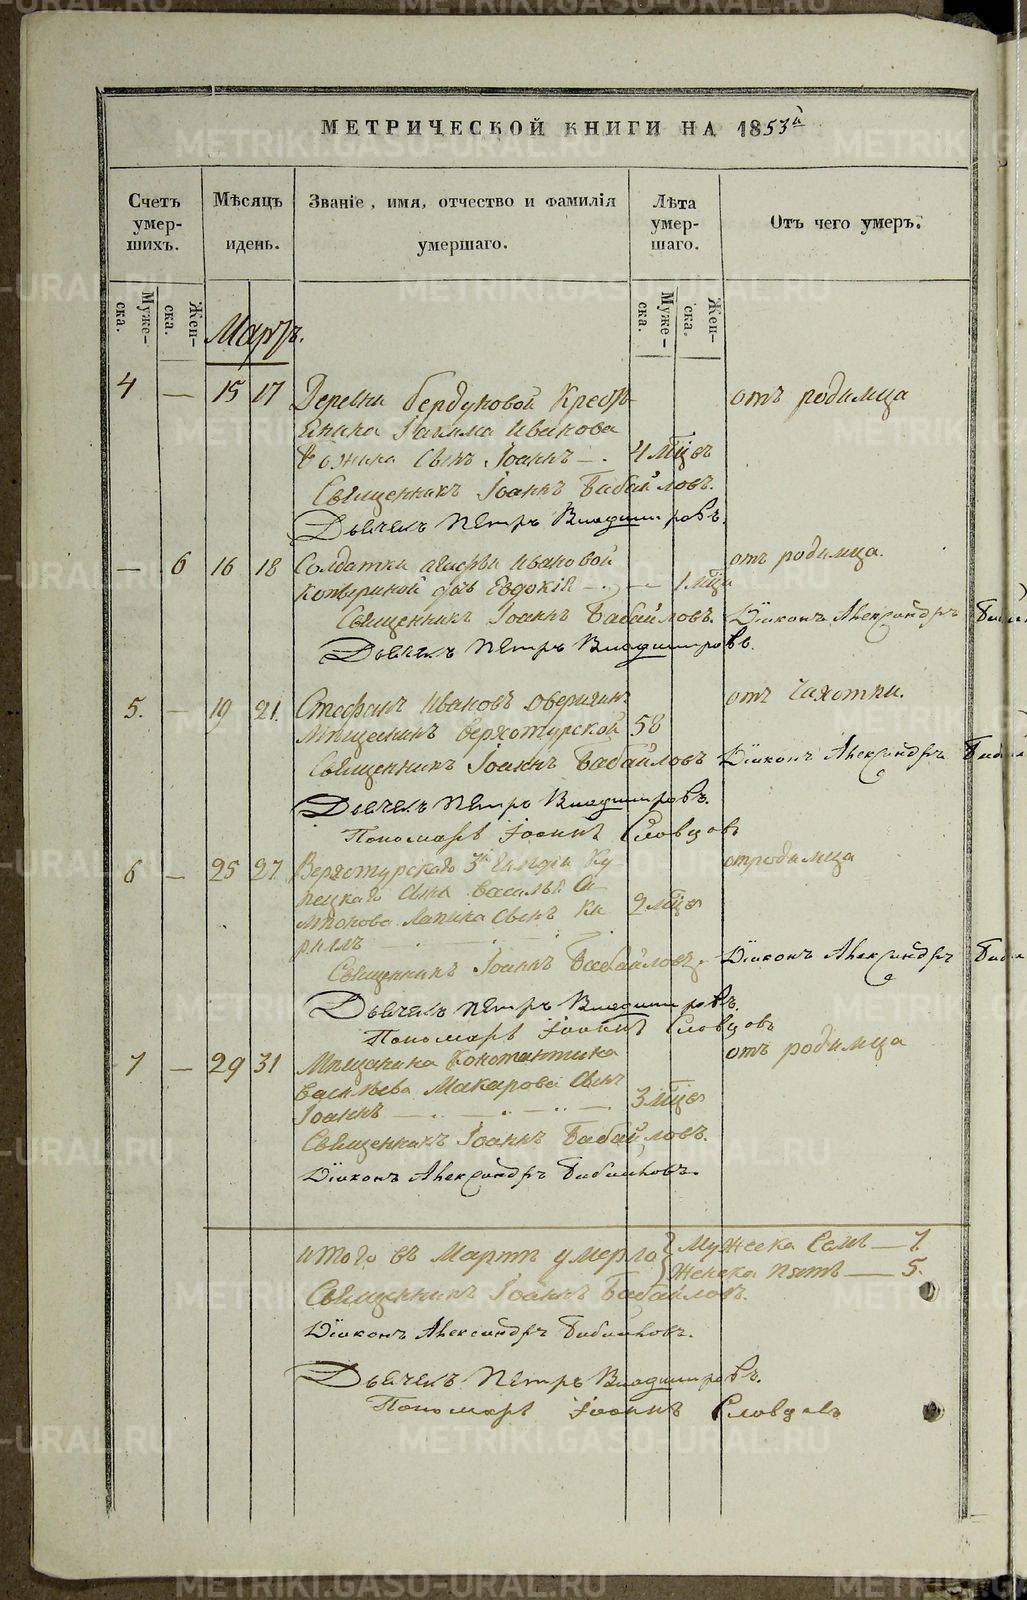 МЕТРИЧЕСКОЙ КНИГИ НА 1853й
Счетъ умер-шихъ.
Мѣсяцъ и день.
Званіе, имя, отчество и фамилія умершаго.
Лѣта умер-шаго.
Отъ чего умеръ.
Муже-ска.
Жен-ска.
Муже-ска.
Жен-ска.
Мартъ.
4 — 15 17 Деревни Бердуковой Крестъ- отъ родимца
янина Ивакова
сынъ Іоаннъ —. 4 мѣся
Священникъ Іоаннъ Бабайловъ.
Дьячекъ Петръ Владимировъ.
— 6 16 18 Солдатки Ивановой отъ родимца.
дочь Евдокія — 1 мѣся
Священникъ Іоаннъ Бабайловъ. Діаконъ Александръ
Дьячекъ Петръ Владимировъ.
5. — 19 21. Стефанъ Ивановъ Оверинъ отъ чахотки.
Мѣщанинъ Верхотурской 58
Священникъ Іоаннъ Бабайловъ Діаконъ Александръ
Дьячекъ Петръ Владимировъ.
Пономарь Іоаннъ Словцовъ
6 — 25 27 Верхотурскаго 3й Гильдіи Ку- отъ родимца
пецкаго сына Василья
Лапина сынъ Ки 2 мѣся
рилъ —
Священникъ Іоаннъ Бабайловъ. Діаконъ Александръ
Дьячекъ Петръ Владимировъ.
Пономарь Іоаннъ Словцовъ
7 — 29 31 Мѣщанина Константина отъ родимца
Васильева Макарова сынъ
Іоаннъ — 3 мѣся
Священникъ Іоаннъ Бабайловъ.
Діаконъ Александръ Бабайловъ.
Итого въ Мартѣ умерло Мужеска Семь — 7
Женска пять — 5.
Священникъ Іоаннъ Бабайловъ.
Діаконъ Александръ Бабайловъ.
Дьячекъ Петръ Владимировъ.
Пономарь Іоаннъ Словцовъ
METRIKI.GASO-URAL.RU